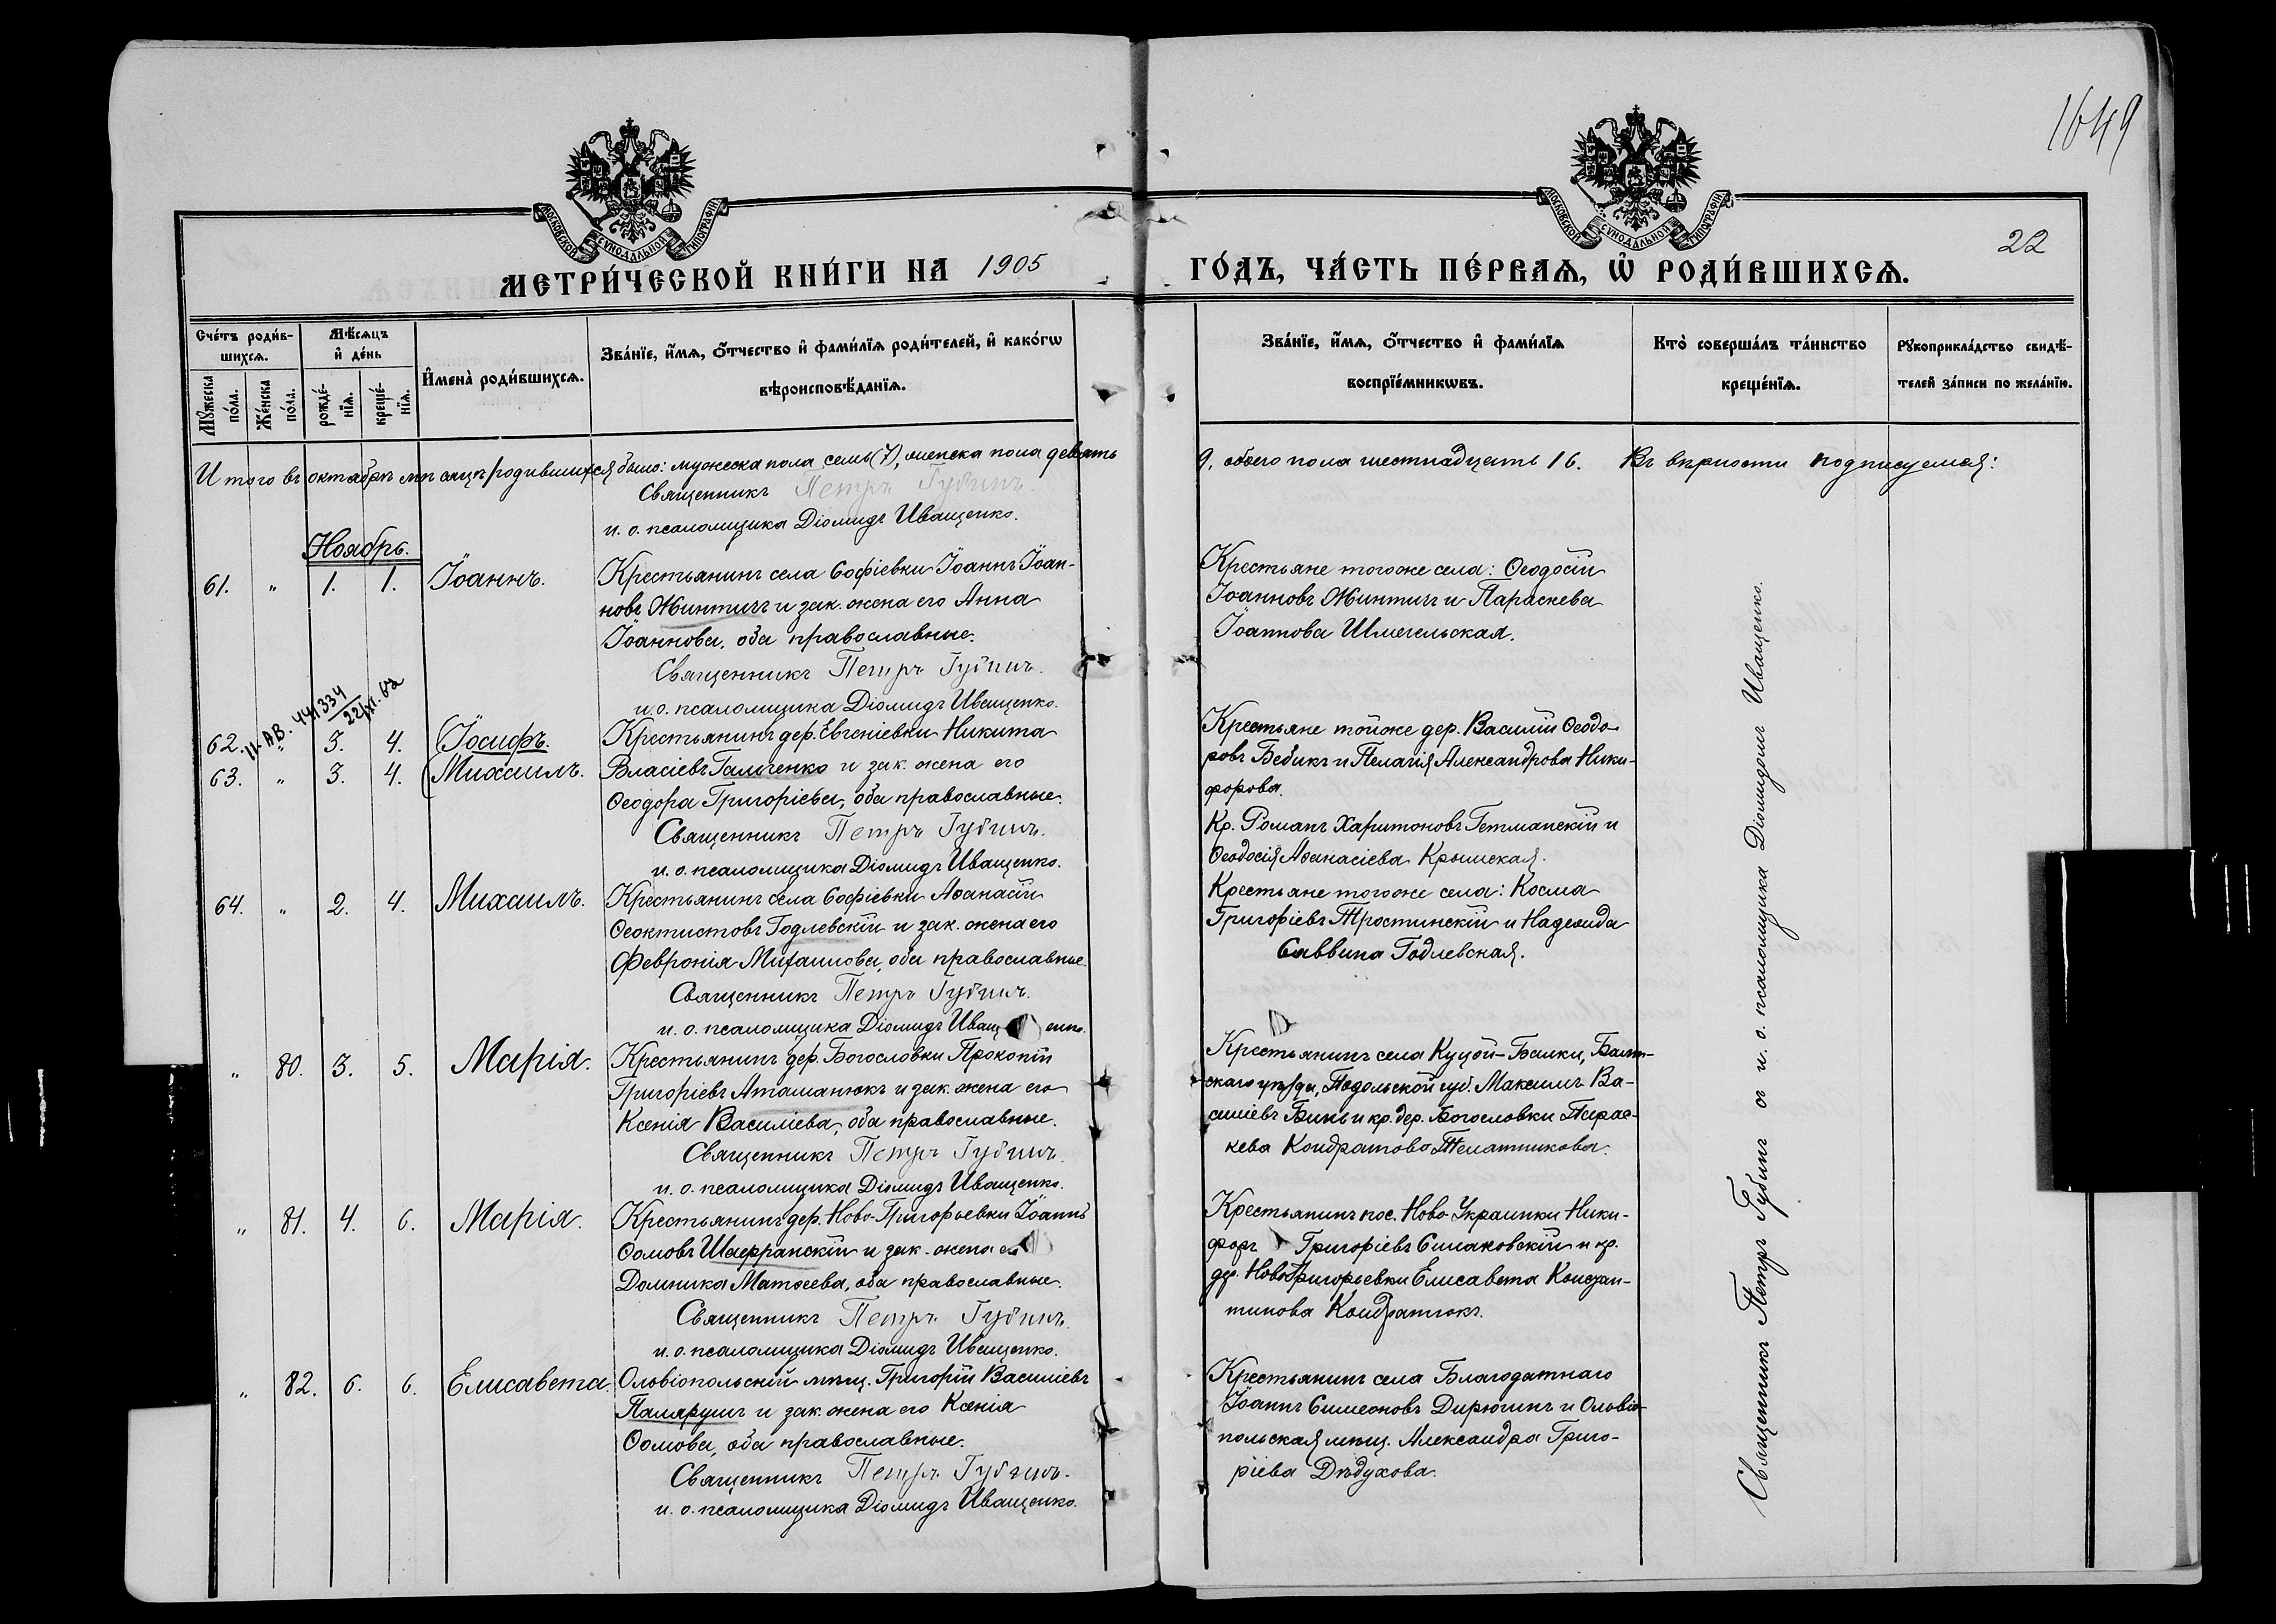 1649
МОСКОВСКОЙ СѴНОДАЛЬНОЙ ТИПОГРАФІИ
МОСКОВСКОЙ СѴНОДАЛЬНОЙ ТИПОГРАФІИ
22
МЕТРИ́ЧЕСКОЙ КНИ́ГИ НА 1905 ГО́ДЪ, ЧА́СТЬ ПЕ́РВАѦ, Ѡ҆ РОДИ́ВШИХСѦ.
Сче́тъ роди́в-
шихсѧ.
Мꙋ́жеска по́ла.
Же́нска по́ла.
Мѣ́сѧцъ
и҆ де́нь
рожде́-
нїѧ.
креще́-
нїѧ.
И҆мена̀ роди́вшихсѧ.
Зва́нїе, и҆́мѧ, ѻ҆́тчество и҆ фами́лїѧ роди́телей, и҆ како́гѡ
вѣроисповѣ́данїѧ.
Зва́нїе, и҆́мѧ, ѻ҆́тчество и҆ фами́лїѧ
воспрїе́мникѡвъ.
Кто̀ соверша́лъ та́инство
креще́нїѧ.
Рꙋкоприкла́дство свидѣ́-
телей за́писи по жела́нїю.
Итого въ октябрѣ мѣсяцѣ родившихся было: мужеска пола семь (7), женска пола девять
9, обоего пола шестнадцать 16. Въ вѣрности подписуемся:
Священникъ Петръ Губинъ
и. о. псаломщика Діомидъ Иващенко.
Ноябрь.
61. " 1. 1. Іоаннъ.
Крестьянинъ села Софіевки Іоаннъ Іоан-
новъ Жинтичъ и зак. жена его Анна
Іоаннова, оба православные.
Священникъ Петръ Губинъ.
и. о. псаломщика Діомидъ Иващенко.
Крестьяне тогоже села: Ѳеодосій
Іоанновъ Жинтичъ и Параскева
Іоаннова Шмегельская.
II-АВ. 441334
22/XI. 62
62. " 3. 4. Іосифъ.
63. " 3. 4. Михаилъ.
Крестьянинъ дер. Евгеніевки Никита
Власіевъ Гальченко и зак. жена его
Ѳеодора Григоріева, оба православные.
Священникъ Петръ Губинъ.
и. о. псаломщика Діомидъ Иващенко.
Крестьяне тойже дер. Василій Ѳеодо-
ровъ Бебикъ и Пелагія Александрова Ники-
форова.
Кр. Романъ Харитоновъ Гетманскій и
Ѳеодосія Аѳанасіева Крымская.
64. " 2. 4. Михаилъ.
Крестьянинъ села Софіевки Аѳанасій
Ѳеоктистовъ Годлевскій и зак. жена его
Февронія Михаилова, оба православные.
Священникъ Петръ Губинъ.
и. о. псаломщика Діомидъ Иващенко.
Крестьяне тогоже села: Косма
Григоріевъ Тростинскій и Надежда
Саввина Годлевская.
" 80. 3. 5. Марія.
Крестьянинъ дер. Богословки Прокопій
Григоріевъ Атаманюкъ и зак. жена его
Ксенія Василіева, оба православные.
Священникъ Петръ Губинъ.
и. о. псаломщика Діомидъ Иващенко.
Крестьянинъ села Куцой-Балки, Балт-
скаго уѣзда, Подольской губ. Максимъ Ва-
силіевъ Бинь и кр. дер. Богословки Парас-
кева Кондратова Телатникова.
" 81. 4. 6. Марія.
Крестьянинъ дер. Ново-Григорьевки Іоаннъ
Ѳомовъ Шафранскій и зак. жена его
Домника Матѳеева, оба православные.
Священникъ Петръ Губинъ.
и. о. псаломщика Діомидъ Иващенко.
Крестьянинъ пос. Ново Украинки Ники-
форъ Григоріевъ Симаковскій и кр.
дер. Ново Григорьевки Елисавета Констан-
тинова Кондратюкъ.
" 82. 6. 6. Елисавета.
Ольвіопольскій мѣщ. Григорій Василіевъ
Паляруш и зак. жена его Ксенія
Ѳомова, оба православные.
Священникъ Петръ Губинъ.
и. о. псаломщика Діомидъ Иващенко.
Крестьянинъ села Благодатнаго
Іоаннъ Симеоновъ Дирюгинъ и Ольвіо-
польская мѣщ. Александра Григо-
ріева Дѣдухова.
Священникъ Петръ Губинъ съ и. о. псаломщика Діомидомъ Иващенко.